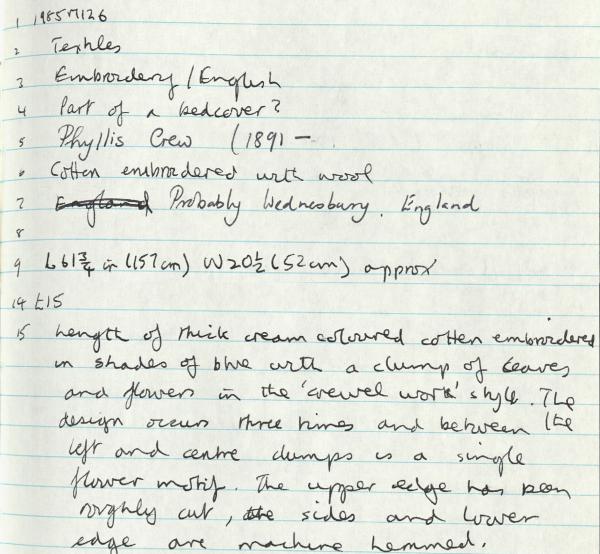 1 1985M126
2 Textiles
3 Embroidery/English
4 Part of a bedcover?
5 Phyllis Crew (1891 –
6 Cotton embroidered with wool
7 England Probably Wednesbury. England
8
9 L 61 3/4 in (157cm) W 20 1/2 (52cm) approx
14 £15
15 Length of thick cream coloured cotton embroidered
in shades of blue with a clump of leaves
and flowers in the 'crewel work' style. The
design occurs three times and between the
left and centre clumps is a single
flower motif. The upper edge has been
roughly cut, the sides and lower
edge are machine hemmed.